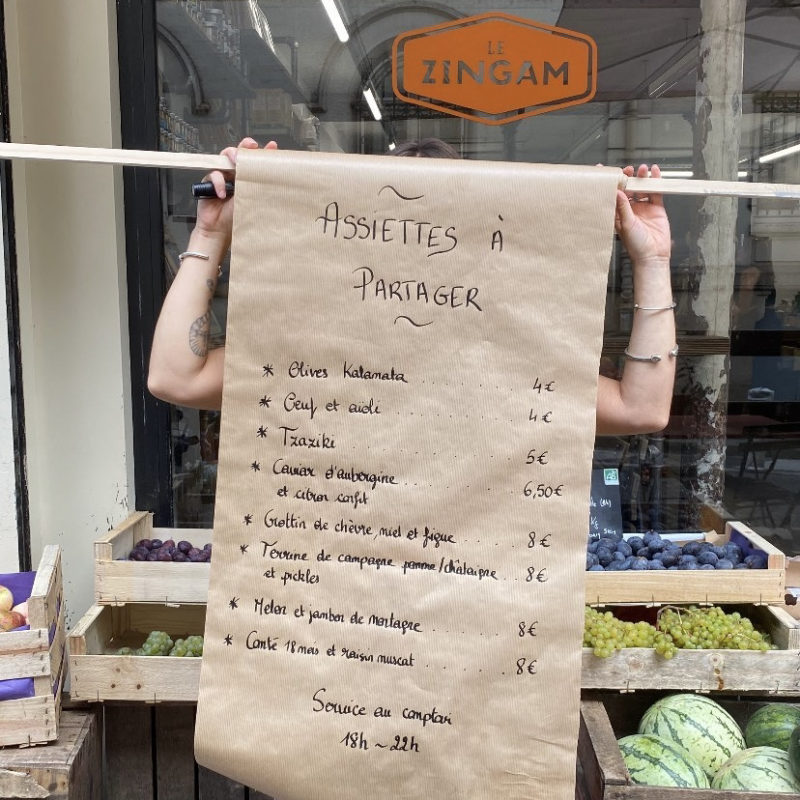 LE
ZINGAM
ASSIETTES À
PARTAGER
* Olives Kalamata ........ 4€
* Oeuf et aïoli ........ 4€
* Tzaziki ........ 5€
* Caviar d'aubergine
et citron confit ........ 6,50€
* Crottin de chèvre, miel et figue ..... 8€
* Terrine de campagne pomme/châtaigne .. 8€
et pickles
* Melon et jambon de montagne ........ 8€
* Comté 18 mois et raisin muscat ........ 8€
Service au comptoir
18h ~ 22h